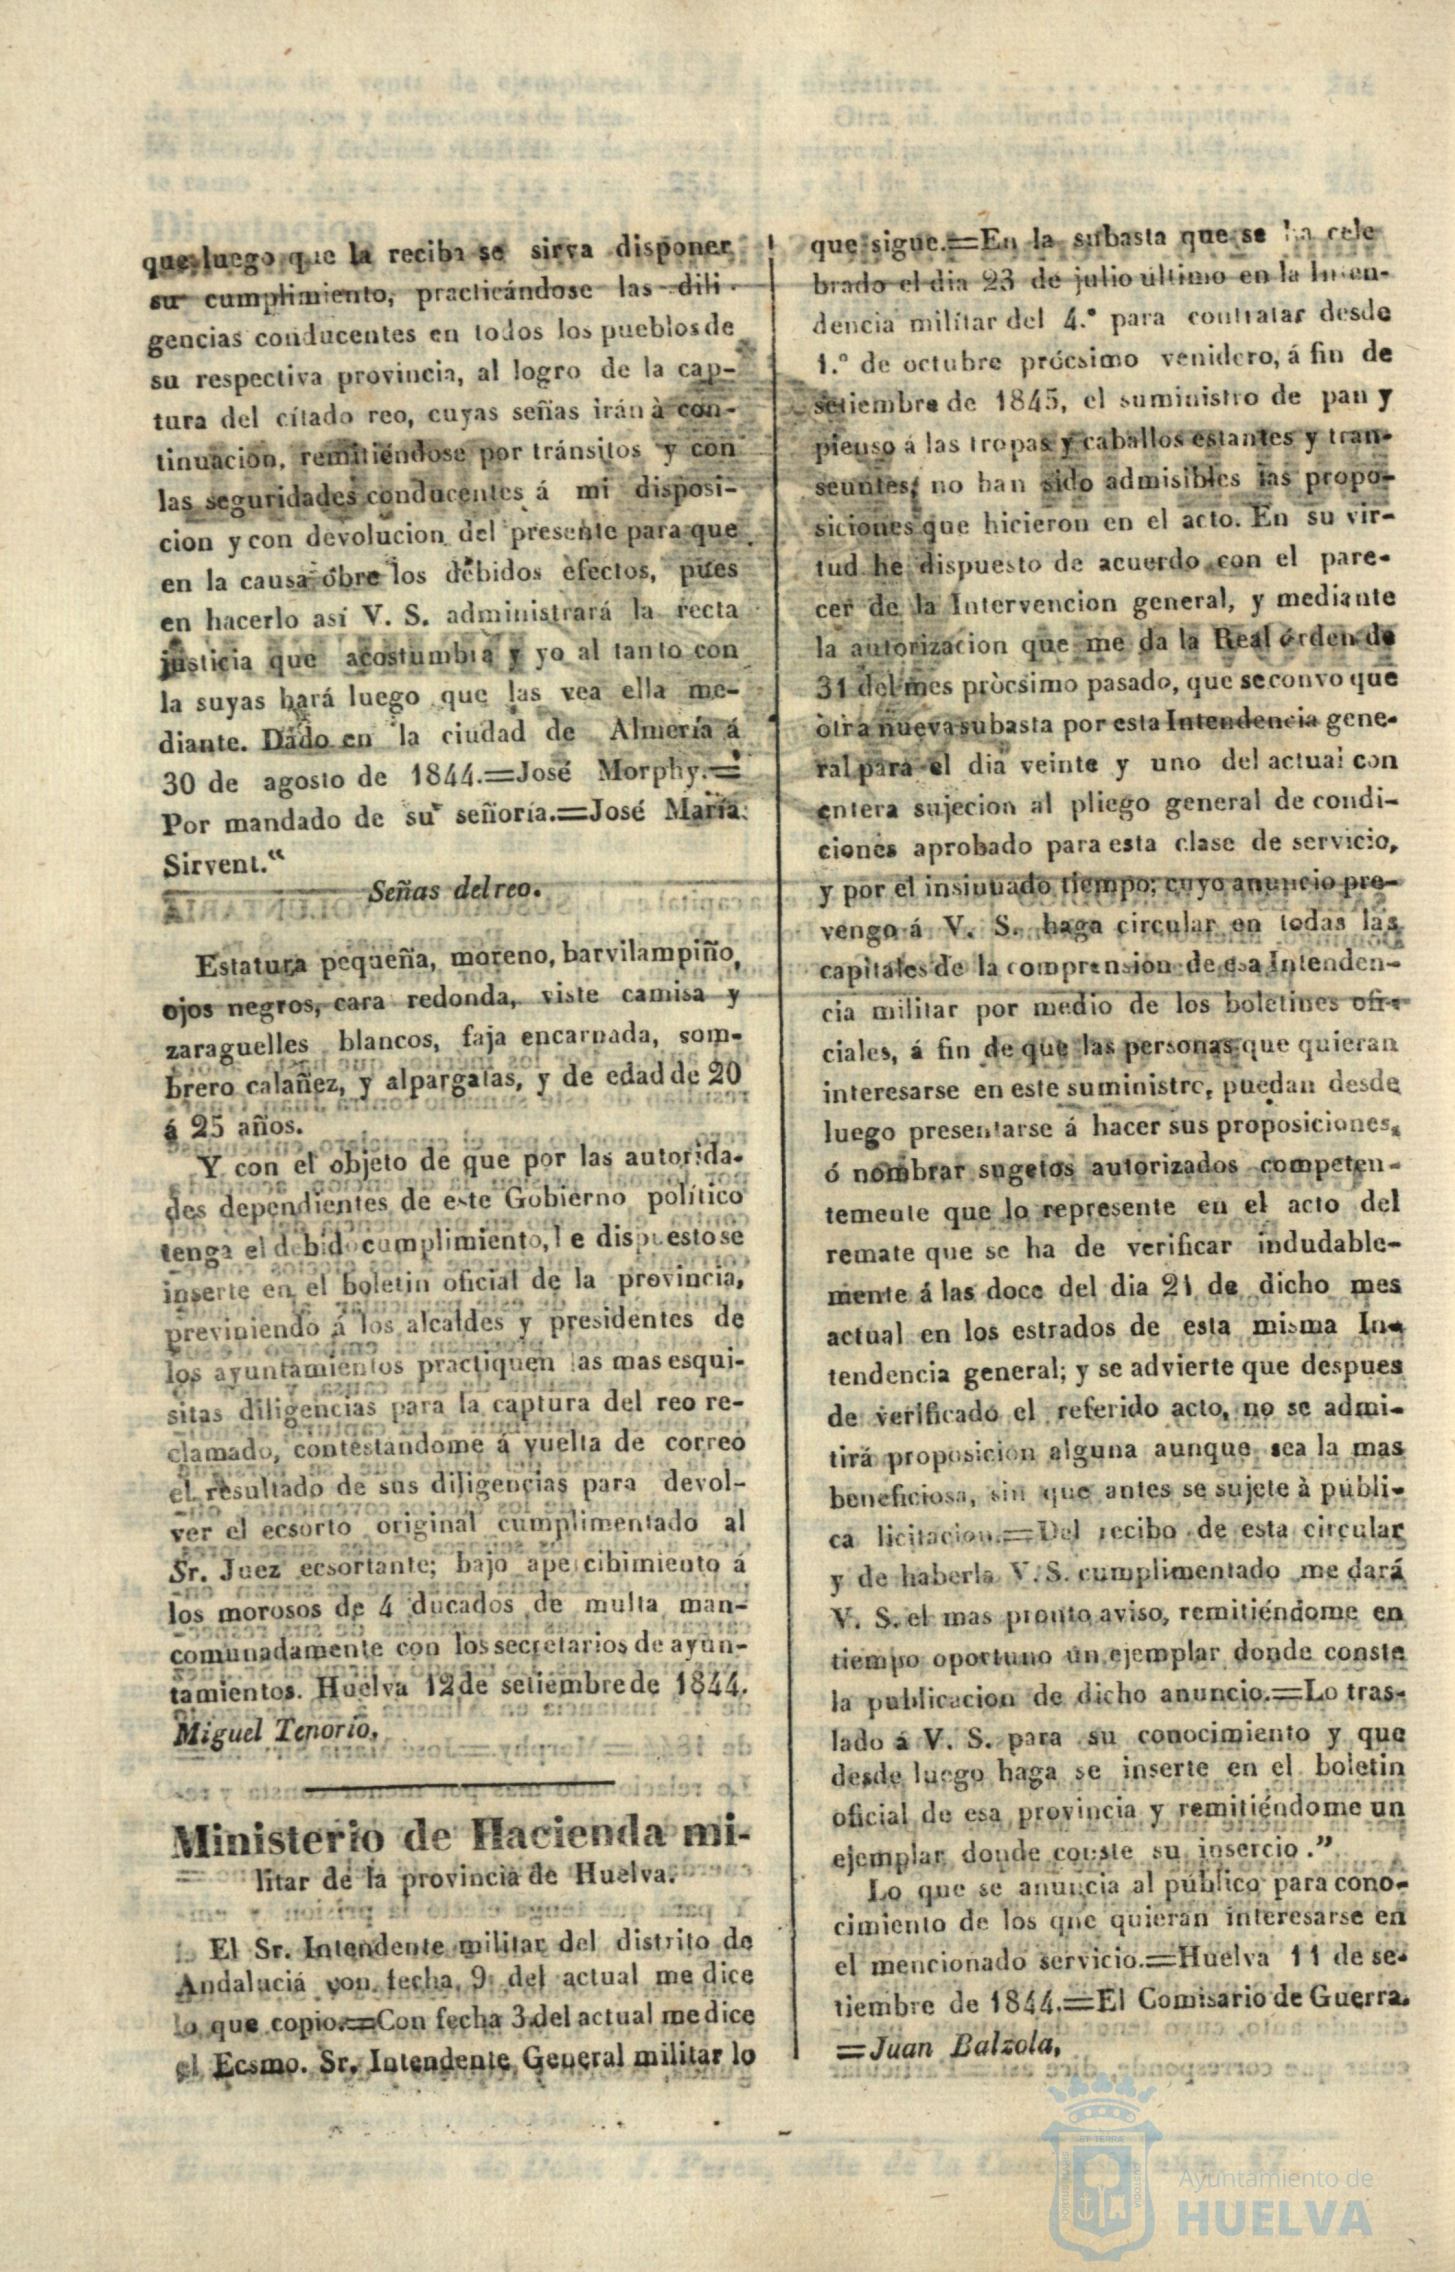 que luego que la reciba se sirva disponer
su cumplimiento, practicándose las dili-
gencias conducentes en todos los pueblos de
su respectiva provincia, al logro de la cap-
tura del citado reo, cuyas señas irán à con-
tinuacion, remitiéndose por tránsitos y con
las seguridades conducentes á mi disposi-
cion y con devolucion del presente para que
en la causa obre los debidos efectos, pues
en hacerlo asi V. S. administrará la recta
justicia que acostumbra y yo al tanto con
la suyas hará luego que las vea ella me-
diante. Dado en la ciudad de Almería á
30 de agosto de 1844.=José Morphy.=
Por mandado de su señoría.=José María
Sirvent.“
Señas del reo.
Estatura pequeña, moreno, barvilampiño,
ojos negros, cara redonda, viste camisa y
zaraguelles blancos, faja encarnada, som-
brero calañez, y alpargatas, y de edad de 20
á 25 años.
Y con el objeto de que por las autorida-
des dependientes de este Gobierno político
tenga el debido cumplimiento, he dispuesto se
inserte en el boletin oficial de la provincia,
previniendo á los alcaldes y presidentes de
los ayuntamientos practiquen las mas esqui-
sitas diligencias para la captura del reo re-
clamado, contestándome á vuelta de correo
el resultado de sus diligencias para devol-
ver el ecsorto original cumplimentado al
Sr. Juez ecsortante; bajo apercibimiento á
los morosos de 4 ducados de multa man-
comunadamente con los secretarios de ayun-
tamientos. Huelva 12 de setiembre de 1844.
Miguel Tenorio.
Ministerio de Hacienda mi-
litar de la provincia de Huelva.
El Sr. Intendente militar del distrito de
Andaluciá con fecha 9 del actual me dice
lo que copio.=Con fecha 3 del actual me dice
el Ecsmo. Sr. Intendente General militar lo
que sigue.=En la subasta que se ha cele
brado el dia 23 de julio último en la Inten-
dencia militar del 4.º para contratar desde
1.º de octubre prócsimo venidero, á fin de
setiembre de 1845, el suministro de pan y
pienso á las tropas y caballos estantes y tran-
seuntes, no han sido admisibles las propo-
siciones que hicieron en el acto. En su vir-
tud he dispuesto de acuerdo con el pare-
cer de la Intervencion general, y mediante
la autorizacion que me da la Real órden de
31 del mes pròcsimo pasado, que se convo que
otra nueva subasta por esta Intendencia gene-
ral para el dia veinte y uno del actual con
entera sujecion al pliego general de condi-
ciones aprobado para esta clase de servicio,
y por el insinuado tiempo; cuyo anuncio pre-
vengo á V. S. haga circular en todas las
capitales de la comprension de esa Intenden-
cia militar por medio de los boletines ofi-
ciales, á fin de que las personas que quieran
interesarse en este suministro, puedan desde
luego presentarse á hacer sus proposiciones,
ó nombrar sugetos autorizados competen-
temente que lo represente en el acto del
remate que se ha de verificar indudable-
mente á las doce del dia 21 de dicho mes
actual en los estrados de esta misma In-
tendencia general; y se advierte que despues
de verificado el referido acto, no se admi-
tirá proposicion alguna aunque sea la mas
beneficiosa, sin que antes se sujete à públi-
ca licitacion.=Del recibo de esta circular
y de haberla V. S. cumplimentado me dará
V. S. el mas pronto aviso, remitiéndome en
tiempo oportuno un ejemplar donde conste
la publicacion de dicho anuncio.=Lo tras-
lado á V. S. para su conocimiento y que
desde luego haga se inserte en el boletin
oficial de esa provincia y remitiéndome un
ejemplar donde conste su insercio.”
Lo que se anuncia al público para cono-
cimiento de los que quieran interesarse en
el mencionado servicio.=Huelva 11 de se-
tiembre de 1844.=El Comisario de Guerra.
=Juan Balzola.
Ayuntamiento de
HUELVA